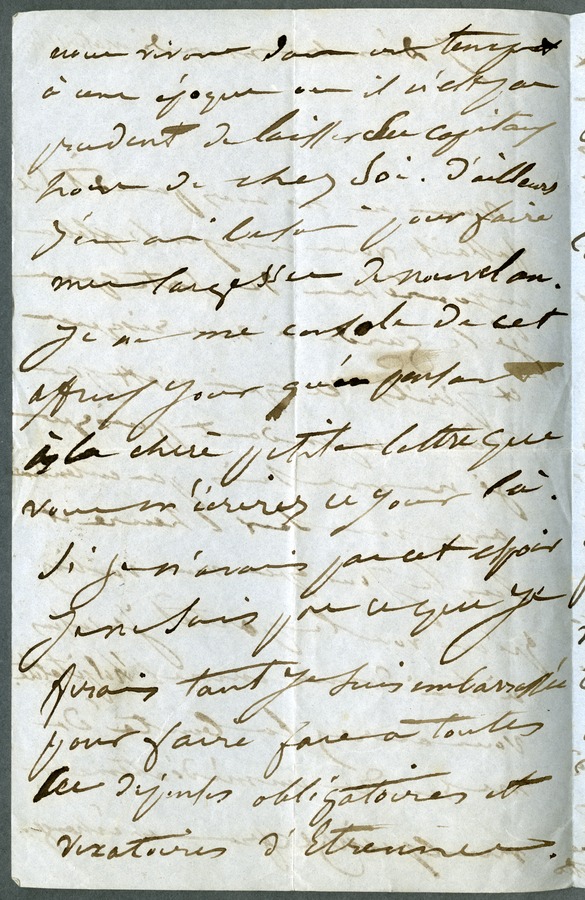 nous vivons dans un temps et
à une époque où il n'est pas
prudent de laisser des capitaux
hors de chez Soi. d'ailleurs
j'en ai besoin pour faire
mes largesses de nouvel an.
Je ne me console de cet
affreux jour qu'en pensant
à la chère petite lettre que
vous m'écrirez ce jour là.
Si je n'avais pas cet espoir
je ne Sais pas ce que je
ferais tant je suis embarrassée
pour faire face à toutes
les dépenses obligatoires et
vexatoires d'Etrennes.